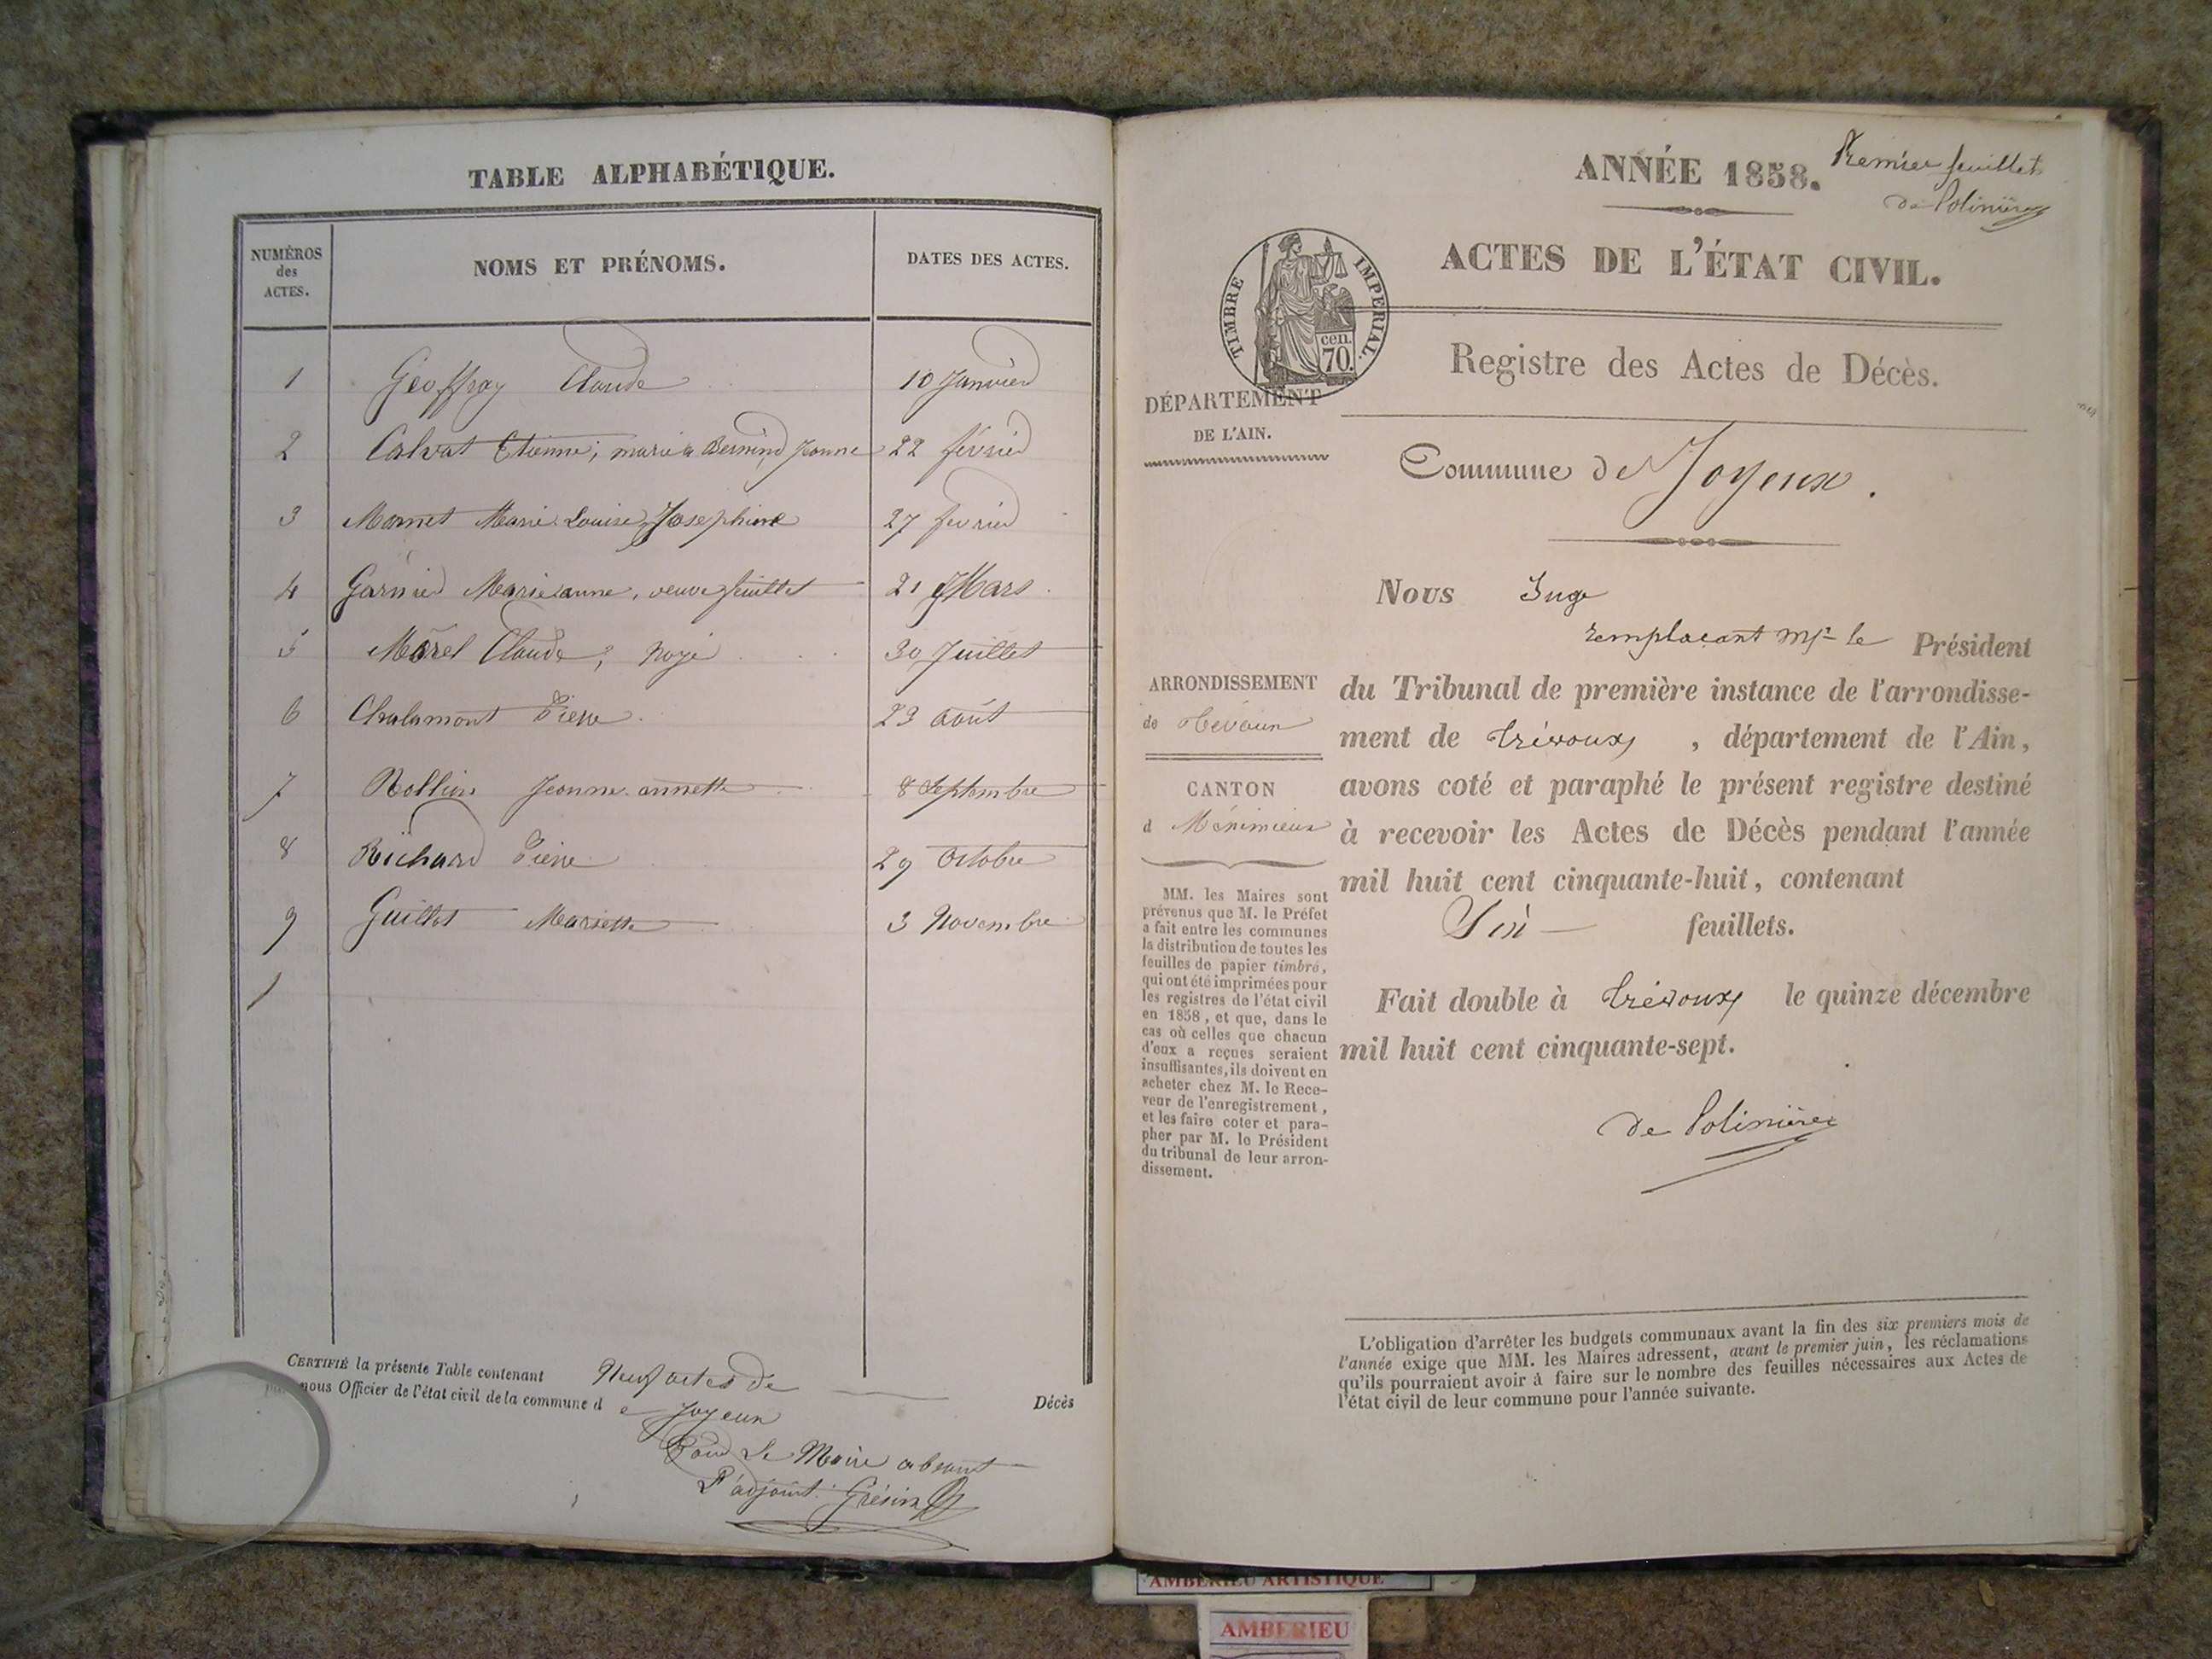 TABLE ALPHABÉTIQUE.
NUMÉROS
des
ACTES.
NOMS ET PRÉNOMS.
DATES DES ACTES.
1 Geoffray Claude 10 Janvier
2 Calvat Etienne, marié à Bernind Jeanne 22 février
3 Mornet Marie Louise Josephine 27 fevrier
4 Garnier Marieanne, veuve feuillet 21 Mars
5 Morel Claude, noyé 30 Juillet
6 Chalamont Pierre 23 août
7 Rollin Jeanne annette 8 Septembre
8 Richard Pierre 29 Octobre
9 Guillot Mariette 3 Novembre
CERTIFIÉ la présente Table contenant Neuf actes de Décès
par nous Officier de l'état civil de la commune d e Joyeux
Pour Le Maire absent
L'adjoint Grésin
ANNÉE 1858.
Premier feuillet
de Polinière
ACTES DE L'ÉTAT CIVIL.
TIMBRE IMPÉRIAL.
cen.
70.
Registre des Actes de Décès.
DÉPARTEMENT
DE L'AIN.
Commune de Joyeux.
Nous Juge
remplaçant Mr le Président
du Tribunal de première instance de l'arrondisse-
ment de Trévoux, département de l'Ain,
avons coté et paraphé le présent registre destiné
à recevoir les Actes de Décès pendant l'année
mil huit cent cinquante-huit, contenant
Six feuillets.
Fait double à Trévoux le quinze décembre
mil huit cent cinquante-sept.
de Polinière
ARRONDISSEMENT
de Trévoux
CANTON
d Méximieux
MM. les Maires sont
prévenus que M. le Préfet
a fait entre les communes
la distribution de toutes les
feuilles de papier timbré,
qui ont été imprimées pour
les registres de l'état civil
en 1858, et que, dans le
cas où celles que chacun
d'eux a reçues seraient
insuffisantes, ils doivent en
acheter chez M. le Rece-
veur de l'enregistrement,
et les faire coter et para-
pher par M. le Président
du tribunal de leur arron-
dissement.
L'obligation d'arrêter les budgets communaux avant la fin des six premiers mois de
l'année exige que MM. les Maires adressent, avant le premier juin, les réclamations
qu'ils pourraient avoir à faire sur le nombre des feuilles nécessaires aux Actes de
l'état civil de leur commune pour l'année suivante.
AMBERIEU ARTISTIQUE
AMBERIEU